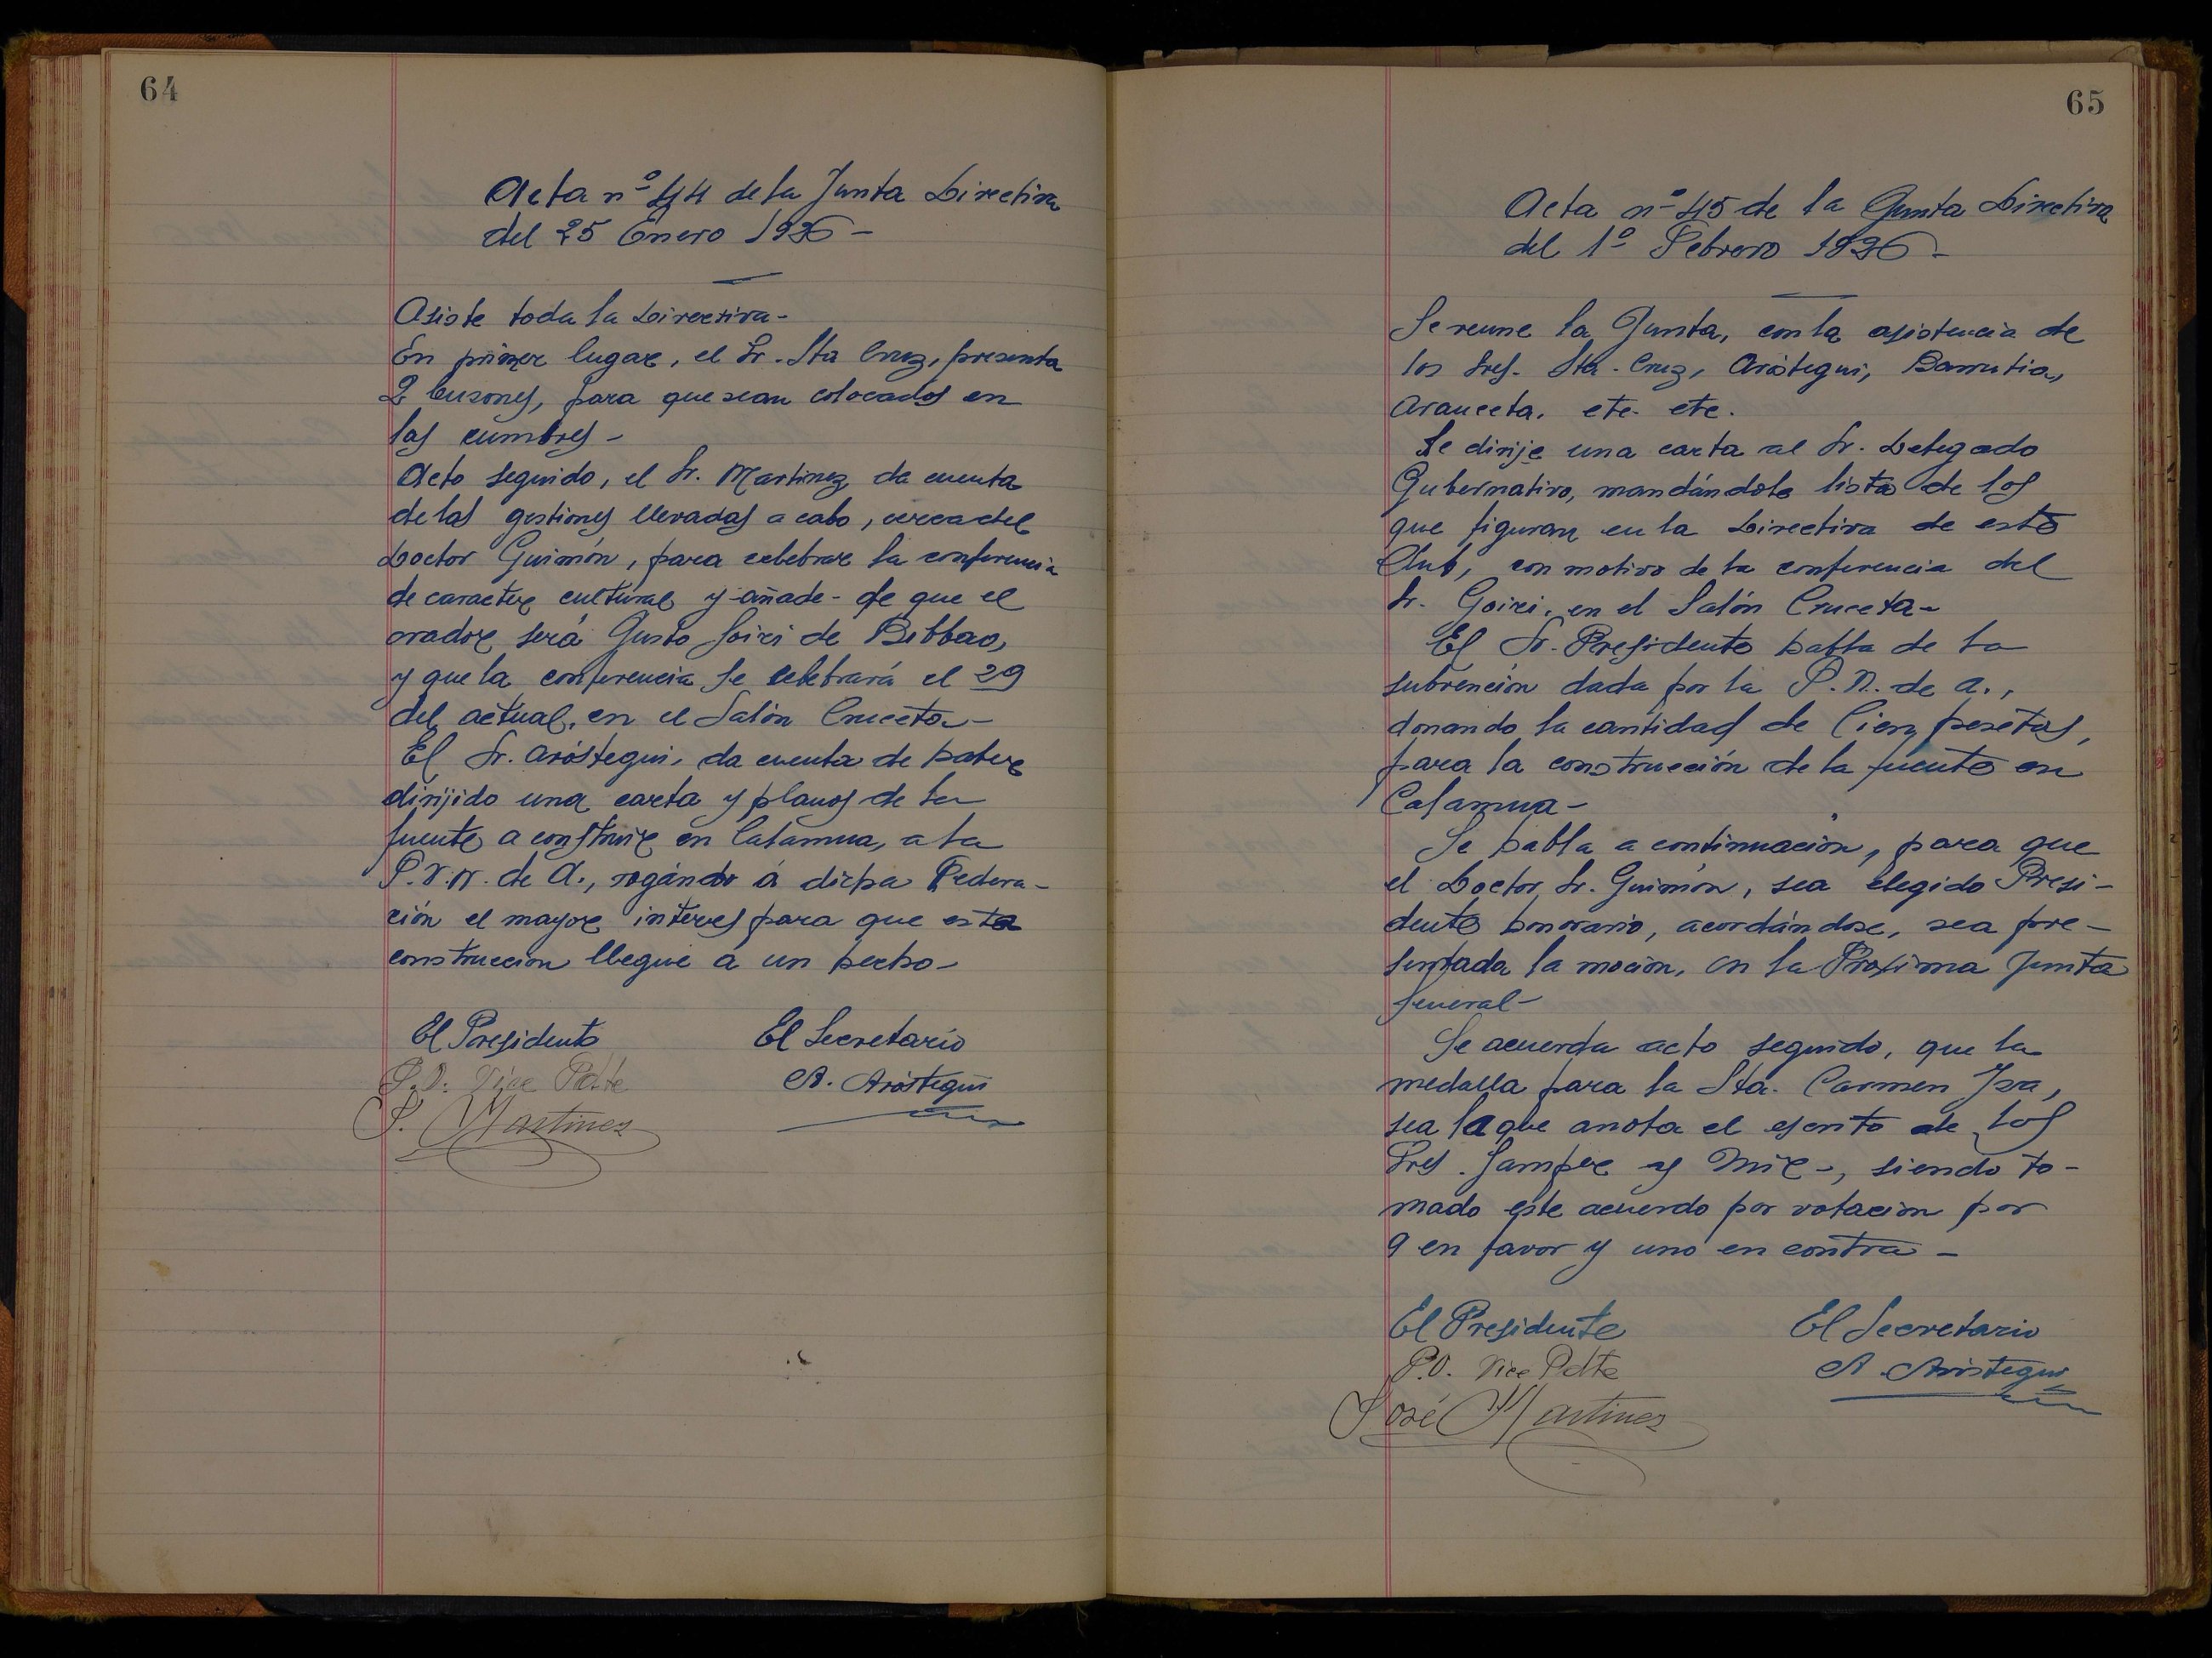 64
Acta nº 44 de la Junta Directiva
del 25 Enero 1936 -
Asiste toda la Directiva -
En primer lugar, el Sr. Sta Cruz, presenta
2 buzones, para que sean colocados en
las cumbres -
Acto seguido, el Sr. Martinez da cuenta
de las gestiones llevadas a cabo, cerca del
Doctor Guimón, para celebrar la conferencia
de caracter cultural y añade - de que el
orador será Justo Goiri de Bilbao,
y que la conferencia se celebrará el 29
del actual, en el Salón Cruceta -
El Sr. Aróstegui, da cuenta de haber
dirijido una carta y planos de la
fuente a construir en Calamua, a la
F.V.N. de A., rogándo á dicha Federa-
ción el mayor interes para que esta
construccion llegue á un hecho -
El Presidente El Secretario
P.O. Vice Pdte A. Aróstegui
J. Martinez
65
Acta nº 45 de la Junta Directiva
del 1º Febrero 1936 -
Se reune la Junta, con la asistencia de
los Sres. Sta. Cruz, Aróstegui, Barrutia,
Aranceta, etc. etc.
Se dirije una carta al Sr. Delegado
Gubernativo, mandándole lista de los
que figuran en la Directiva de este
Club, con motivo de la conferencia del
Sr. Goiri, en el Salón Cruceta -
El Sr. Presidente habla de la
subvención dada por la F.N. de A.,
donando la cantidad de Cien pesetas,
para la construcción de la fuente en
Calamua -
Se habla a continuación, para que
el Doctor Sr. Guimón, sea elegido Presi-
dente honorario, acordándose, sea pre-
sentada la moción, en la Proxima Junta
General -
Se acuerda acto seguido, que la
medalla para la Sta. Carmen
sea la que anota el escrito de los
Sres. Samper y siendo to-
mado este acuerdo por votacion por
9 en favor y uno en contra -
El Presidente El Secretario
P.O. Vice Pdte A. Aróstegui
José Martinez